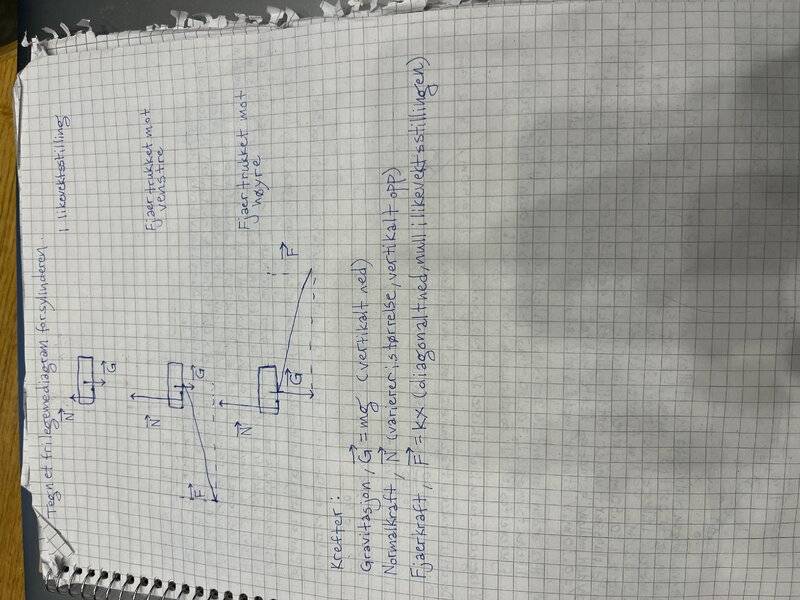 Tegn et frilegemediagram for sylinderen.
N G I likevektsstilling
N G F Fjaer trukket mot
venstre
N G F Fjaer trukket mot
høyre
Krefter:
Gravitasjon, G = mg (vertikalt ned)
Normalkraft, N (varierer i størrelse, vertikalt opp)
Fjaerkraft, F = kx (diagonalt ned, null i likevektsstillingen)